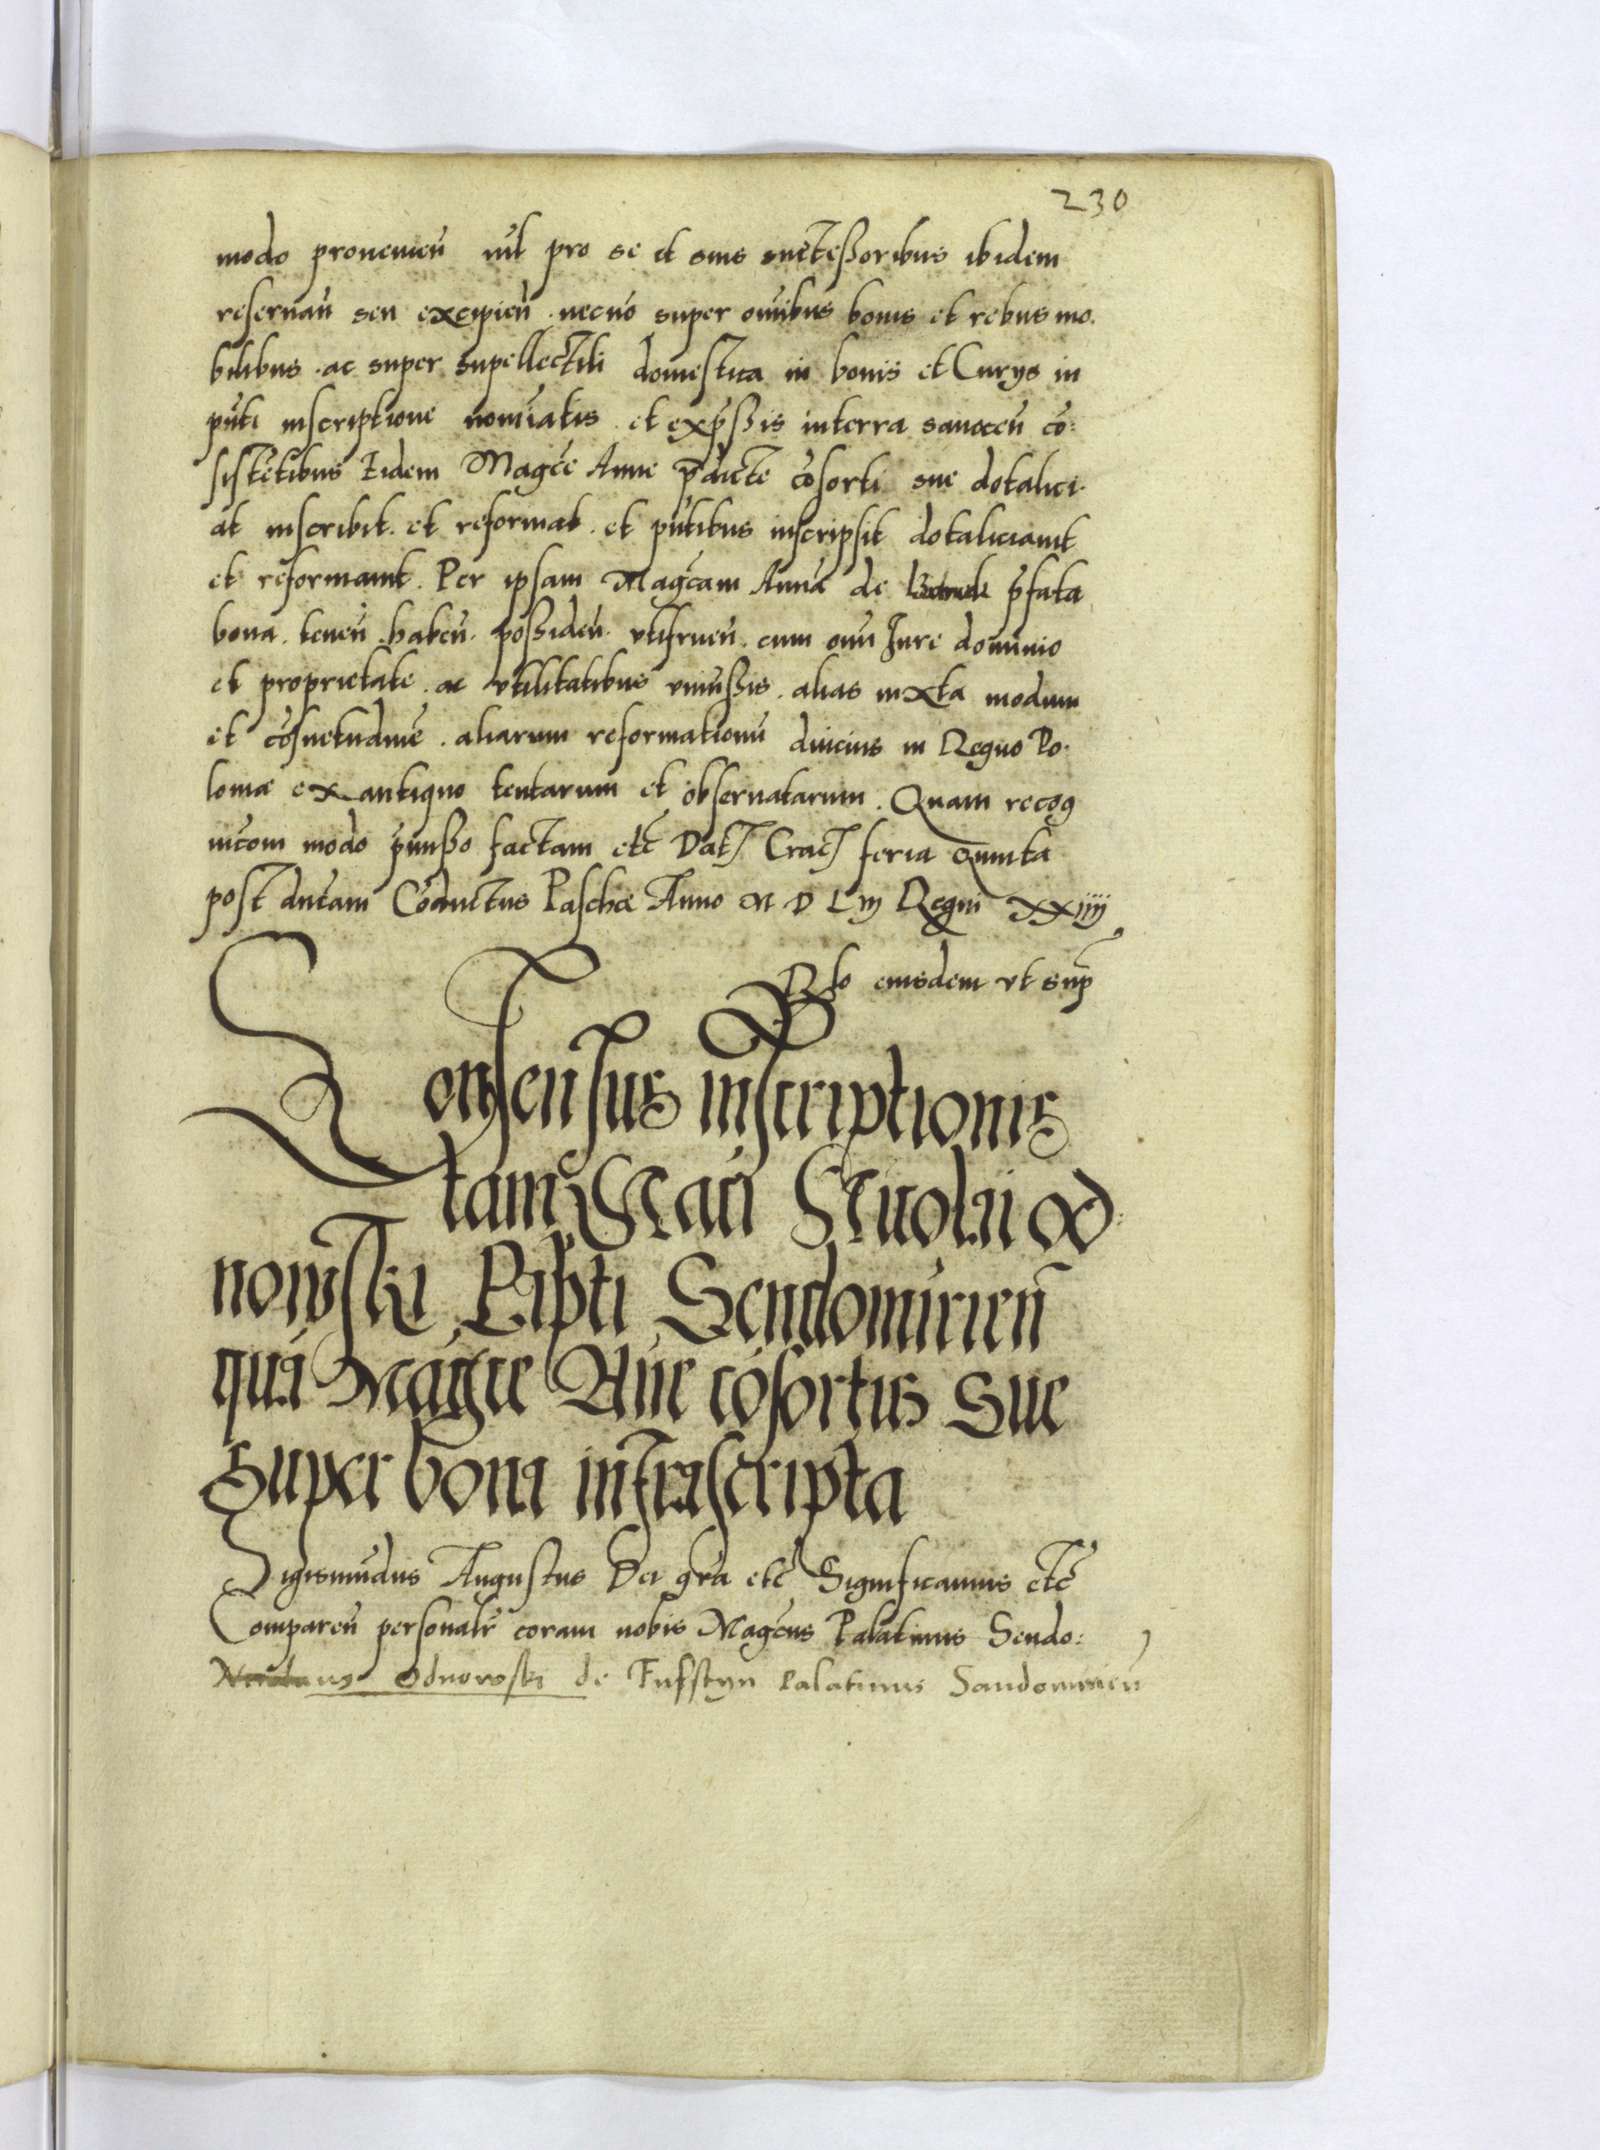 230
modo provenieñ nil pro se et suis successoribus ibidem
reservañ seu excipieñ. necnō super omībus bonis et rebus mo.
bilibus. ac super supellectili domestica in bonis et Curys in
pñti inscriptione nomiātis. et exp̄ssis in terra sanoceñ cō:
sistētibus Eidem Magce Anne p̄dicte cōsorti sue dotalici.
at inscribit. et reformat. et pñtibus inscripsit dotaliciavit
et reformavit. Per ipsam Magcam Annā de p̄fata
bona. teneñ. habeñ. possideñ. utifrueñ. cum omī Jure dominio
et proprietate. ac utilitatibus univssis. alias iuxta modum
et cōsuetudinē. aliarum reformationū in Regno Po.
loniæ ex antiquo tentarum et observatarum. Quam recog
nicom modo p̄misso factam etc̄ Dat Crac feria Quinta
post dnicam Cōductus Paschæ Anno M D L iij Regni xxiiij
Rlo eiusdem ut sup̄
Consensus inscriptionis
tam Mgci Nicolai od:
nowski Palati Sendomirieñ
quā Magce Añe cōsortis Sue
Super bona infrascripta
Sigismūdus Augustus Dei gr̄a etc̄ Significamus etc̄
Compareñ personalr coram nobis Magcus Palatinus Sendo:
Nicolaus Odnowski de Fulstyn Palatinus Sandomirieñ